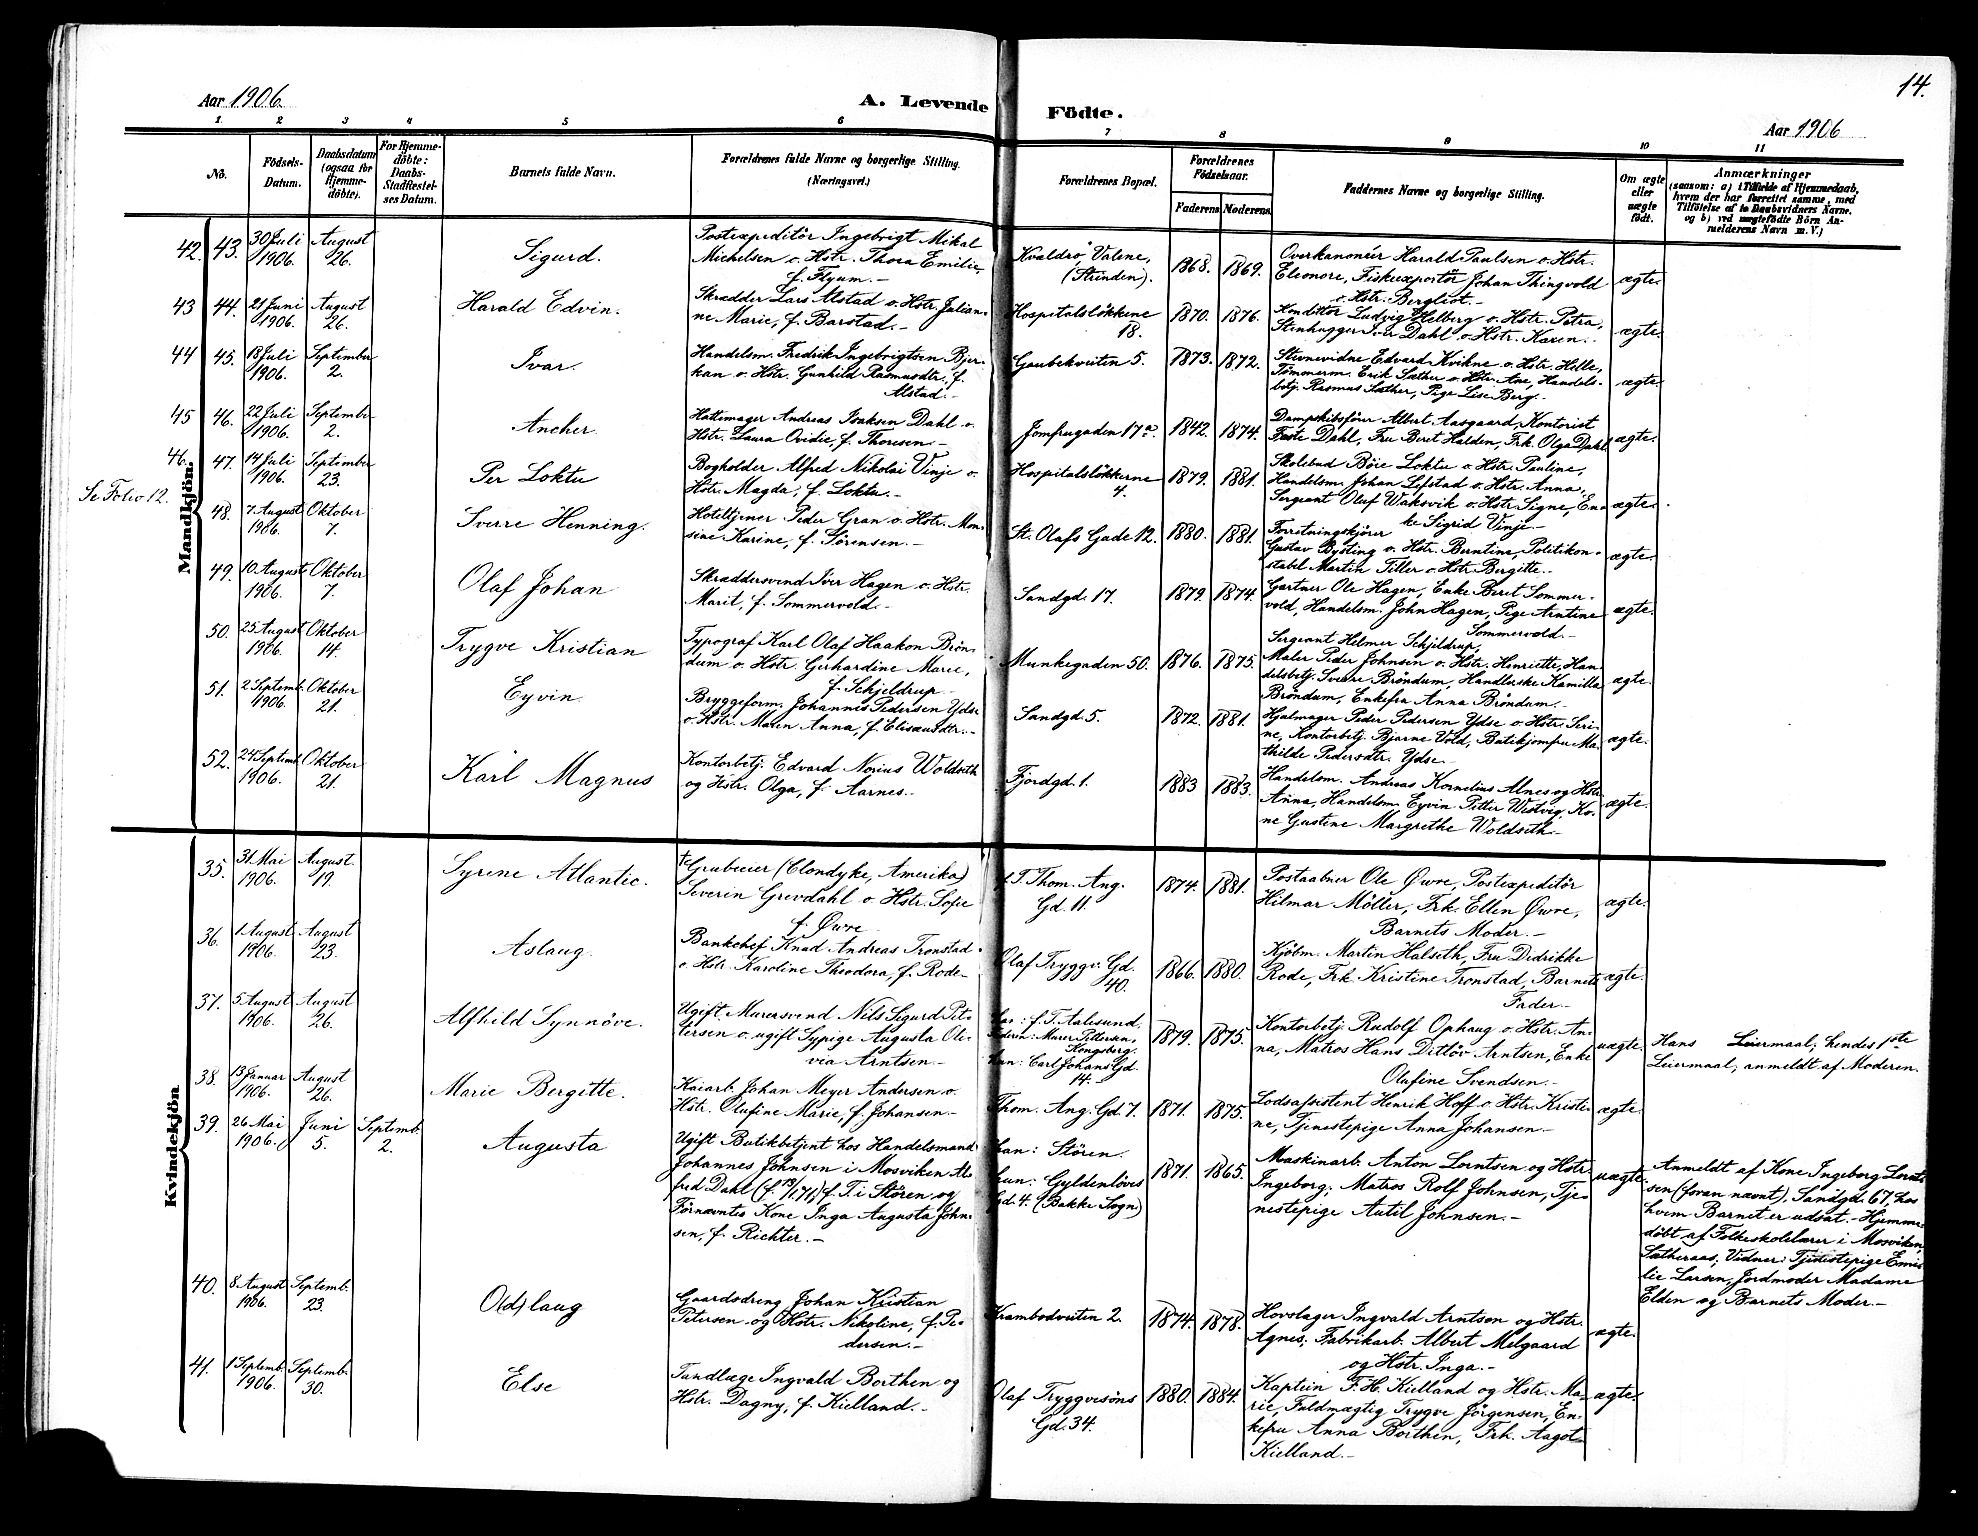 14.
Aar 1906.
A. Levende Födte.
Aar 1906
1 2 3 4 5 6 7 8 9 10 11
No.
Födsels-Datum.
Daabsdatum (ogsaa for Hjemme-döbte).
For Hjemme-döbte: Daabs-Stadfestel-ses Datum.
Barnets fulde Navn.
Forældrenes fulde Navne og borgerlige Stilling. (Næringsvei.)
Forældrenes Bopæl.
Forældrenes Födselsaar.
Faderens Moderens
Faddernes Navne og borgerlige Stilling.
Om ægte eller uægte födt.
Anmærkninger
(saasom: a) i Tilfælde af Hjemmedaab,
hvem der har forrettet samme, med
Tilföielse af to Daabsvidners Navne.
og b) ved uægtefödte Börn An-
melderens Navn m. V.)
Mandkjön.
42. 43. 30 Juli 1906. August 26. Sigurd.
Postexpeditör Ingebrigt Mikal
Michelsen o. Hstr. Thora Emilie,
f. Flyum.-
Kvaldrö, Valene, (Strinden). 1868. 1869.
Overkanonér Harald Paulsen o. Hstr.
Eleonore, Fiskeexportör Johan Thingvold
o. Hstr. Bergliot.-
ægte.
43 44. 21 Juni 1906. August 26. Harald Edvin.
Skrædder Lars Alstad o. Hstr. Julian-
ne Marie, f. Barstad.-
Hospitalslökkene 18. 1870. 1876.
Konditor Ludvig Helberg o. Hstr. Petra,
Stenhugger Iver Dahl o. Hstr. Karen.-
ægte.
44 45. 18 Juli 1906. September 2. Ivar.
Handelsm. Fredrik Ingebrigtsen Bjer-
kan o. Hstr. Gunhild Rasmusdtr., f.
Alstad.-
Gaubekveiten 5. 1873. 1872.
Stevnevidne Edvard Kvikne o. Hstr. Helle,
Tömmerm. Erik Sæther o. Hstr. Ane, Handels-
betj. Rasmus Sæther, Pige Lise Berg.-
ægte.
45 46. 22 Juli 1906. September 2. Ancher.
Hattemager Andreas Isaksen Dahl o.
Hstr. Laura Ovidie, f. Thoresen.-
Jomfrugaden 17a. 1842. 1874.
Dampskibsförer Albert Aasgaard, Kontorist
Faste Dahl, Fru Berit Halden, Frk. Olga Dahl
ægte.
46. 47. 14 Juli 1906. September 23. Per Loktu
Bogholder Alfred Nikolai Vinje o.
Hstr. Magda, f. Loktu.-
Hospitalslökkerne 4. 1879. 1881.
Skolebud Böie Loktu o. Hstr. Pauline,
Handelsm. Johan Lefstad o. Hstr. Anna,
Sergeant Oluf Waksvik o. Hstr. Signe, En-
ke Sigrid Vinje.-
ægte.
Se Folio 12.
48. 7 August 1906. Oktober 7. Sverre Henning.
Hoteltjener Peder Gran o. Hstr. Mon-
sine Karine, f. Sörensen.-
St. Olafs Gade 12. 1880. 1881.
Forretningskjörer
Gustav Bysting o. Hstr. Berntine, Politikon-
stabel Martin Tiller o. Hstr. Bergitte.-
ægte.
49. 10 August 1906. Oktober 7. Olaf Johan
Skræddersvend Iver Hagen o. Hstr.
Marit, f. Sommervold.-
Sandgd. 17. 1879. 1874.
Gartner Ole Hagen, Enke Beret Sommer-
vold, Handelsm. John Hagen, Pige Arntine
Sommervold.-
ægte.
50. 25 August 1906. Oktober 14. Trygve Kristian
Typograf Karl Olaf Haakon Brön-
dum o. Hstr. Gerhardine Marie,
f. Schjeldrup.-
Munkegaden 50. 1876. 1875.
Sergeant Hilmer Schjeldrup,
Maler Peder Johnsen o. Hstr. Henriette, Han-
delsbetj. Sverre Bröndum, Handlerske Kamilla
Bröndum, Enkefru Anna Bröndum.-
ægte.
51. 2 Septemb. 1906. Oktober 21. Eyvin.
Bryggeform. Johannes Pedersen Ydse
o. Hstr. Maren Anna, f. Elisæusdtr.-
Sandgd. 5. 1872. 1881.
Hjulmager Peder Pedersen Ydse o. Hstr. Seri-
ne, Kontorbetj. Bjarne Vold, Butikjomfru Ma-
thilde Pedersdtr. Ydse.-
ægte.
52. 24 Septemb. 1906. Oktober 21. Karl Magnus
Kontorbetj. Edvard Norius Woldseth
og Hstr. Olga, f. Aarnes.-
Fjordgd. 1. 1883 1883.
Handelsm. Andreas Kornelius Alnes og Hstr.
Anna, Handelsm. Eyvin Petter Westvig, Ko-
ne Gustine Margrethe Woldseth.-
ægte.
Kvindekjön
35. 31 Mai 1906. August 19. Syrene Atlantic.
Grubeeier (Clondyke, Amerika)
Severin Grevdahl o. Hstr. Sofie
f. Øwre
f. T. Thom. Ang. Gd. 11. 1874. 1881.
Postaabner Ole Øwre, Postexpeditör
Hilmar Möller, Frk. Ellen Øwre,
Barnets Moder.-
ægte.
36. 1 August 1906. August 23. Aslaug.
Bankchef Knud Andreas Tronstad
o. Hstr. Karoline Theodora, f. Rode.-
Olaf Tryggv. Gd. 40. 1866. 1880.
Kjöbm. Martin Halseth, Fru Didrikke
Rode, Frk. Kristine Tronstad, Barnets
Fader.-
ægte.
37. 5 August 1906. August 26. Alfhild Synnöve.
Ugift Murersvend Nils Sigurd Pet-
tersen o. ugift Sypige Augusta Oli-
via Arntsen.-
f. T. Aalesund.
Murer Pettersen,
Kongsberg.
Carl Johans Gd.
14.
1879. 1875.
Kontorbetj. Rudolf Ophaug o. Hstr. An-
na, Matros Hans Ditlöv Arntsen, Enke
Olufine Svendsen.-
uægte.
Hans Leiermaal; hendes 1ste
Leiermaal; anmeldt af Moderen.
38. 13 Januar 1906. August 26. Marie Bergitte.
Kaiarb. Johan Meyer Andersen o.
Hstr. Olufine Marie, f. Johansen.-
Thom. Ang. Gd. 7. 1871. 1875.
Lodsassistent Henrik Hoff o. Hstr. Kristi-
ne, Tjenestepige Anna Johansen.-
ægte.
39. 26 Mai 1906. Juni 5. Septemb. 2. Augusta
Ugift Butikbetjent hos Handelsmand
Johannes Johnsen i Mosviken Al-
fred Dahl (f. 13/1 71) f. T. i Stören og
Förnævntes Kone Inga Augusta John-
sen, f. Richter.-
han: Stören.
hun: Gyldenlöves
Gd. 4. (Bakke Sogn)
1871. 1865.
Maskinarb. Anton Lorntsen og Hstr.
Ingeborg; Matros Rolf Johnsen, Tje-
nestepige Autil Johnsen.-
uægte.
Anmeldt af Kone Ingeborg Lornt-
sen (foran nævnt), Sandgd. 67, hos
hvem Barnet er udsat.- Hjemme-
döbt af Folkeskolelærer i Mosviken,
Sætheraas, Vidner: Tjenestepige Emi-
lie Larsen, Jordmoder Madame
Elden og Barnets Moder.-
40. 8 August 1906. Septemb. 23. O(d)laug
Gaardsdreng Johan Kristian
Petersen og Hstr. Nikoline, f. Pe-
dersen.-
Krambodveiten 2. 1874. 1878.
Hovslager Ingvald Arntsen og Hstr.
Agnes; Fabrikarb. Albert Melgaard
og Hstr. Inga.-
ægte.
41. 1 Septemb. 1906. Septemb. 30. Else
Tandlæge Ingvald Borthen og
Hstr. Dagny, f. Kielland.-
Olaf Tryggvesöns Gd. 34. 1880. 1884.
Kaptein F. H. Kielland og Hstr. Ma-
rie, Fuldmægtig Trygve Jörgensen, En-
kefru Anna Borthen, Frk. Aagot
Kielland.-
ægte.